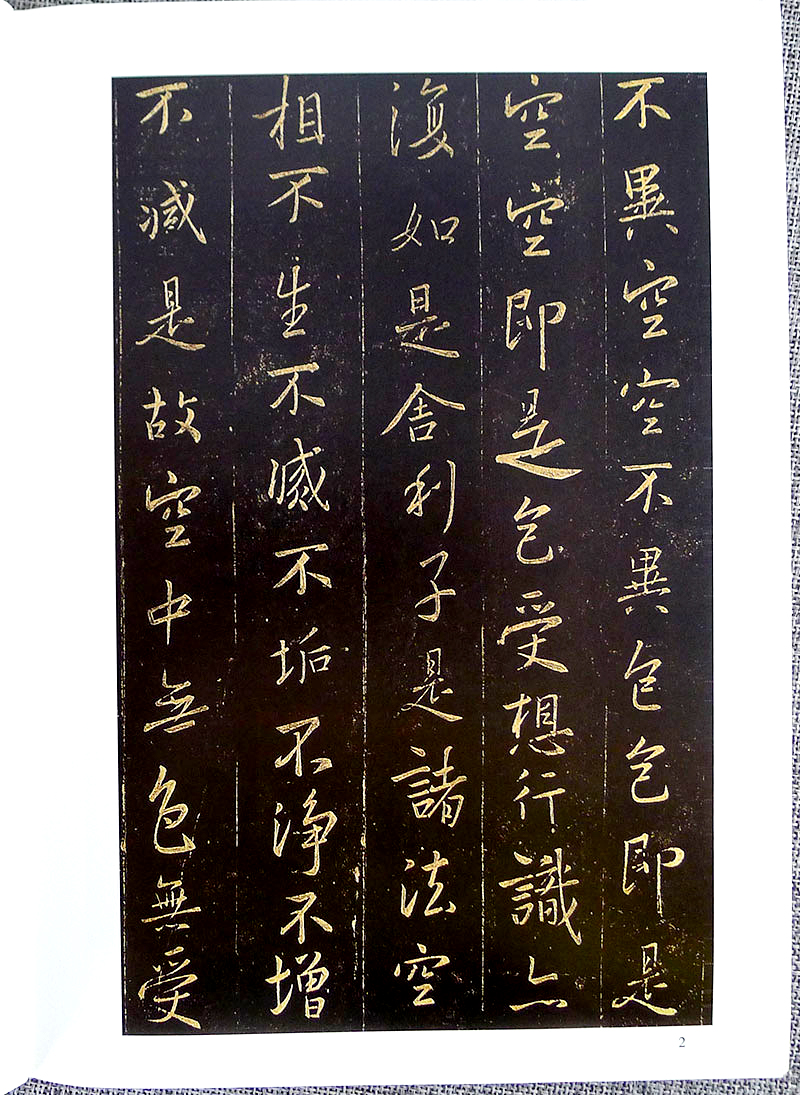 不異空空不異色色即是
空空即是色受想行識亦
復如是舍利子是諸法空
相不生不滅不垢不淨不增
不減是故空中無色無受
2